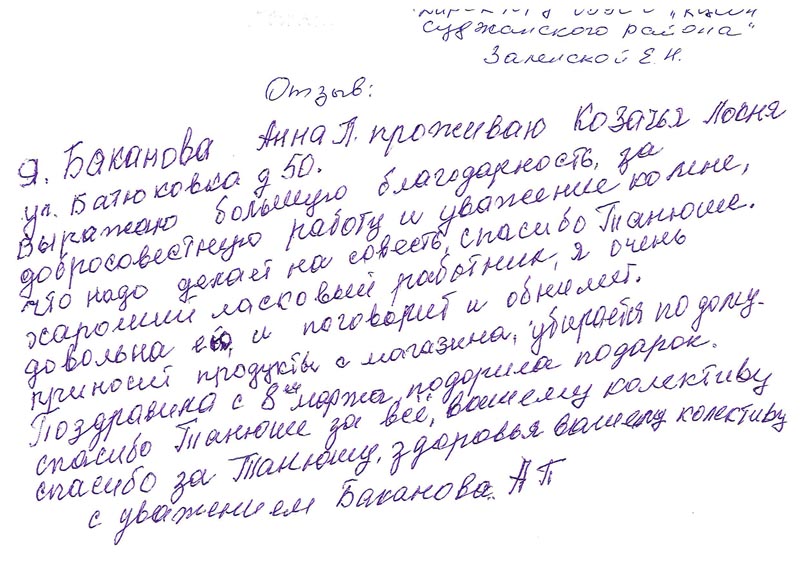 Суджанского района"
Залецской Е.Н.
Отзыв:
Я. Баканова Анна П. проживаю Козачья Локня
ул. Батюковка д 50.
Выражаю большую благодарность, за
добросовестную работу и уважение ко мне,
что надо делает на совесть, спасибо Танюше.
хароший ласковый работник, я очень
довольна ею, и поговорит и обнимет.
приносит продукты с магазина, убирается по дому.
Поздравила с 8 марта, подорила подарок.
спасибо Танюше за всё, вашему колективу
спасибо за Танюшу. здоровья вашему колективу
с уважением Баканова. А П